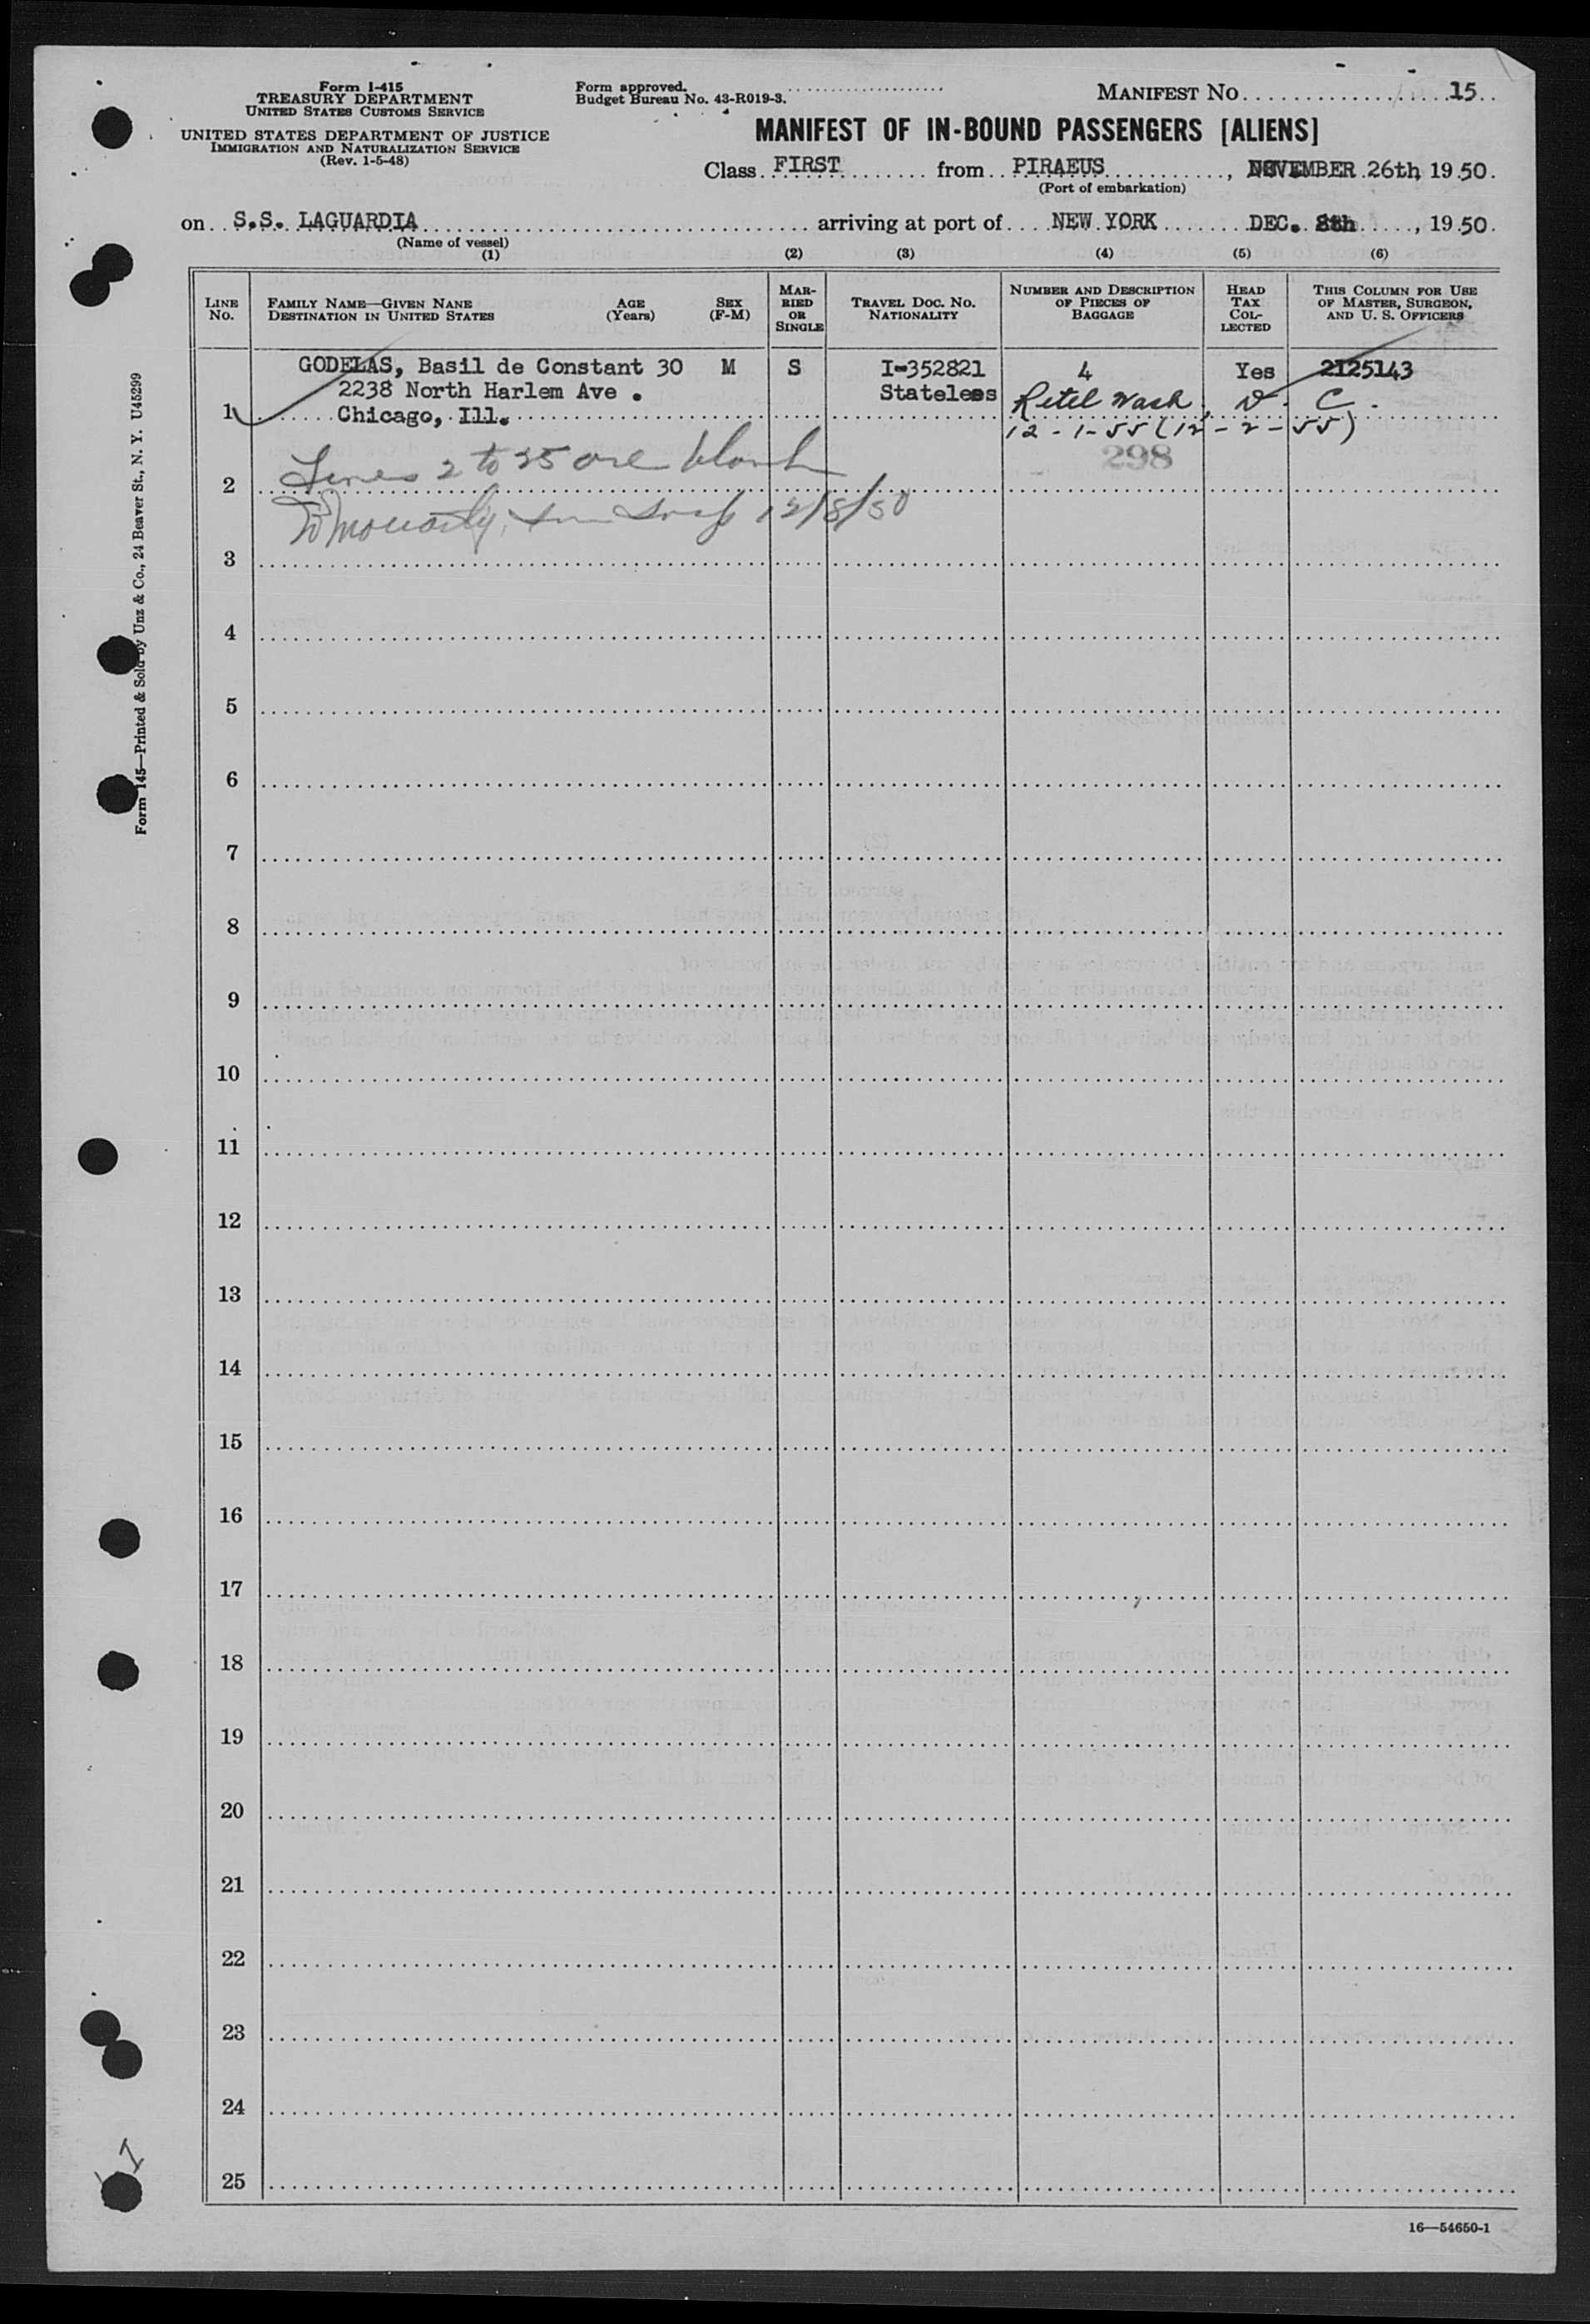 Form I-415
TREASURY DEPARTMENT
UNITED STATES CUSTOMS SERVICE
UNITED STATES DEPARTMENT OF JUSTICE
IMMIGRATION AND NATURALIZATION SERVICE
(Rev. 1-5-48)
Form approved.
Budget Bureau No. 43-R019-3.
MANIFEST NO. 15
MANIFEST OF IN-BOUND PASSENGERS [ALIENS]
Class FIRST from PIRAEUS, NOVEMBER 26th, 1950.
(Port of embarkation)
on S.S. LAGUARDIA arriving at port of NEW YORK DEC. 8th, 1950.
(Name of vessel)
(1) (2) (3) (4) (5) (6)
LINE NO. FAMILY NAME—GIVEN NANE DESTINATION IN UNITED STATES AGE (Years) SEX (F-M) MAR-RIED OR SINGLE TRAVEL DOC. NO. NATIONALITY NUMBER AND DESCRIPTION OF PIECES OF BAGGAGE HEAD TAX COL-LECTED THIS COLUMN FOR USE OF MASTER, SURGEON, AND U. S. OFFICERS
GODELAS, Basil de Constant 30 M S I-352821 4 Yes 2125143
2238 North Harlem Ave. Stateless Retel Wash, D. C.
1 Chicago, Ill. 12-1-55 (12-2-55)
298
2 Lines 2 to 25 are blank
12/8/50
3
4
5
6
7
8
9
10
11
12
13
14
15
16
17
18
19
20
21
22
23
24
25
16—54650-1
Form 145—Printed & Sold by Unz & Co., 24 Beaver St., N. Y. U45299